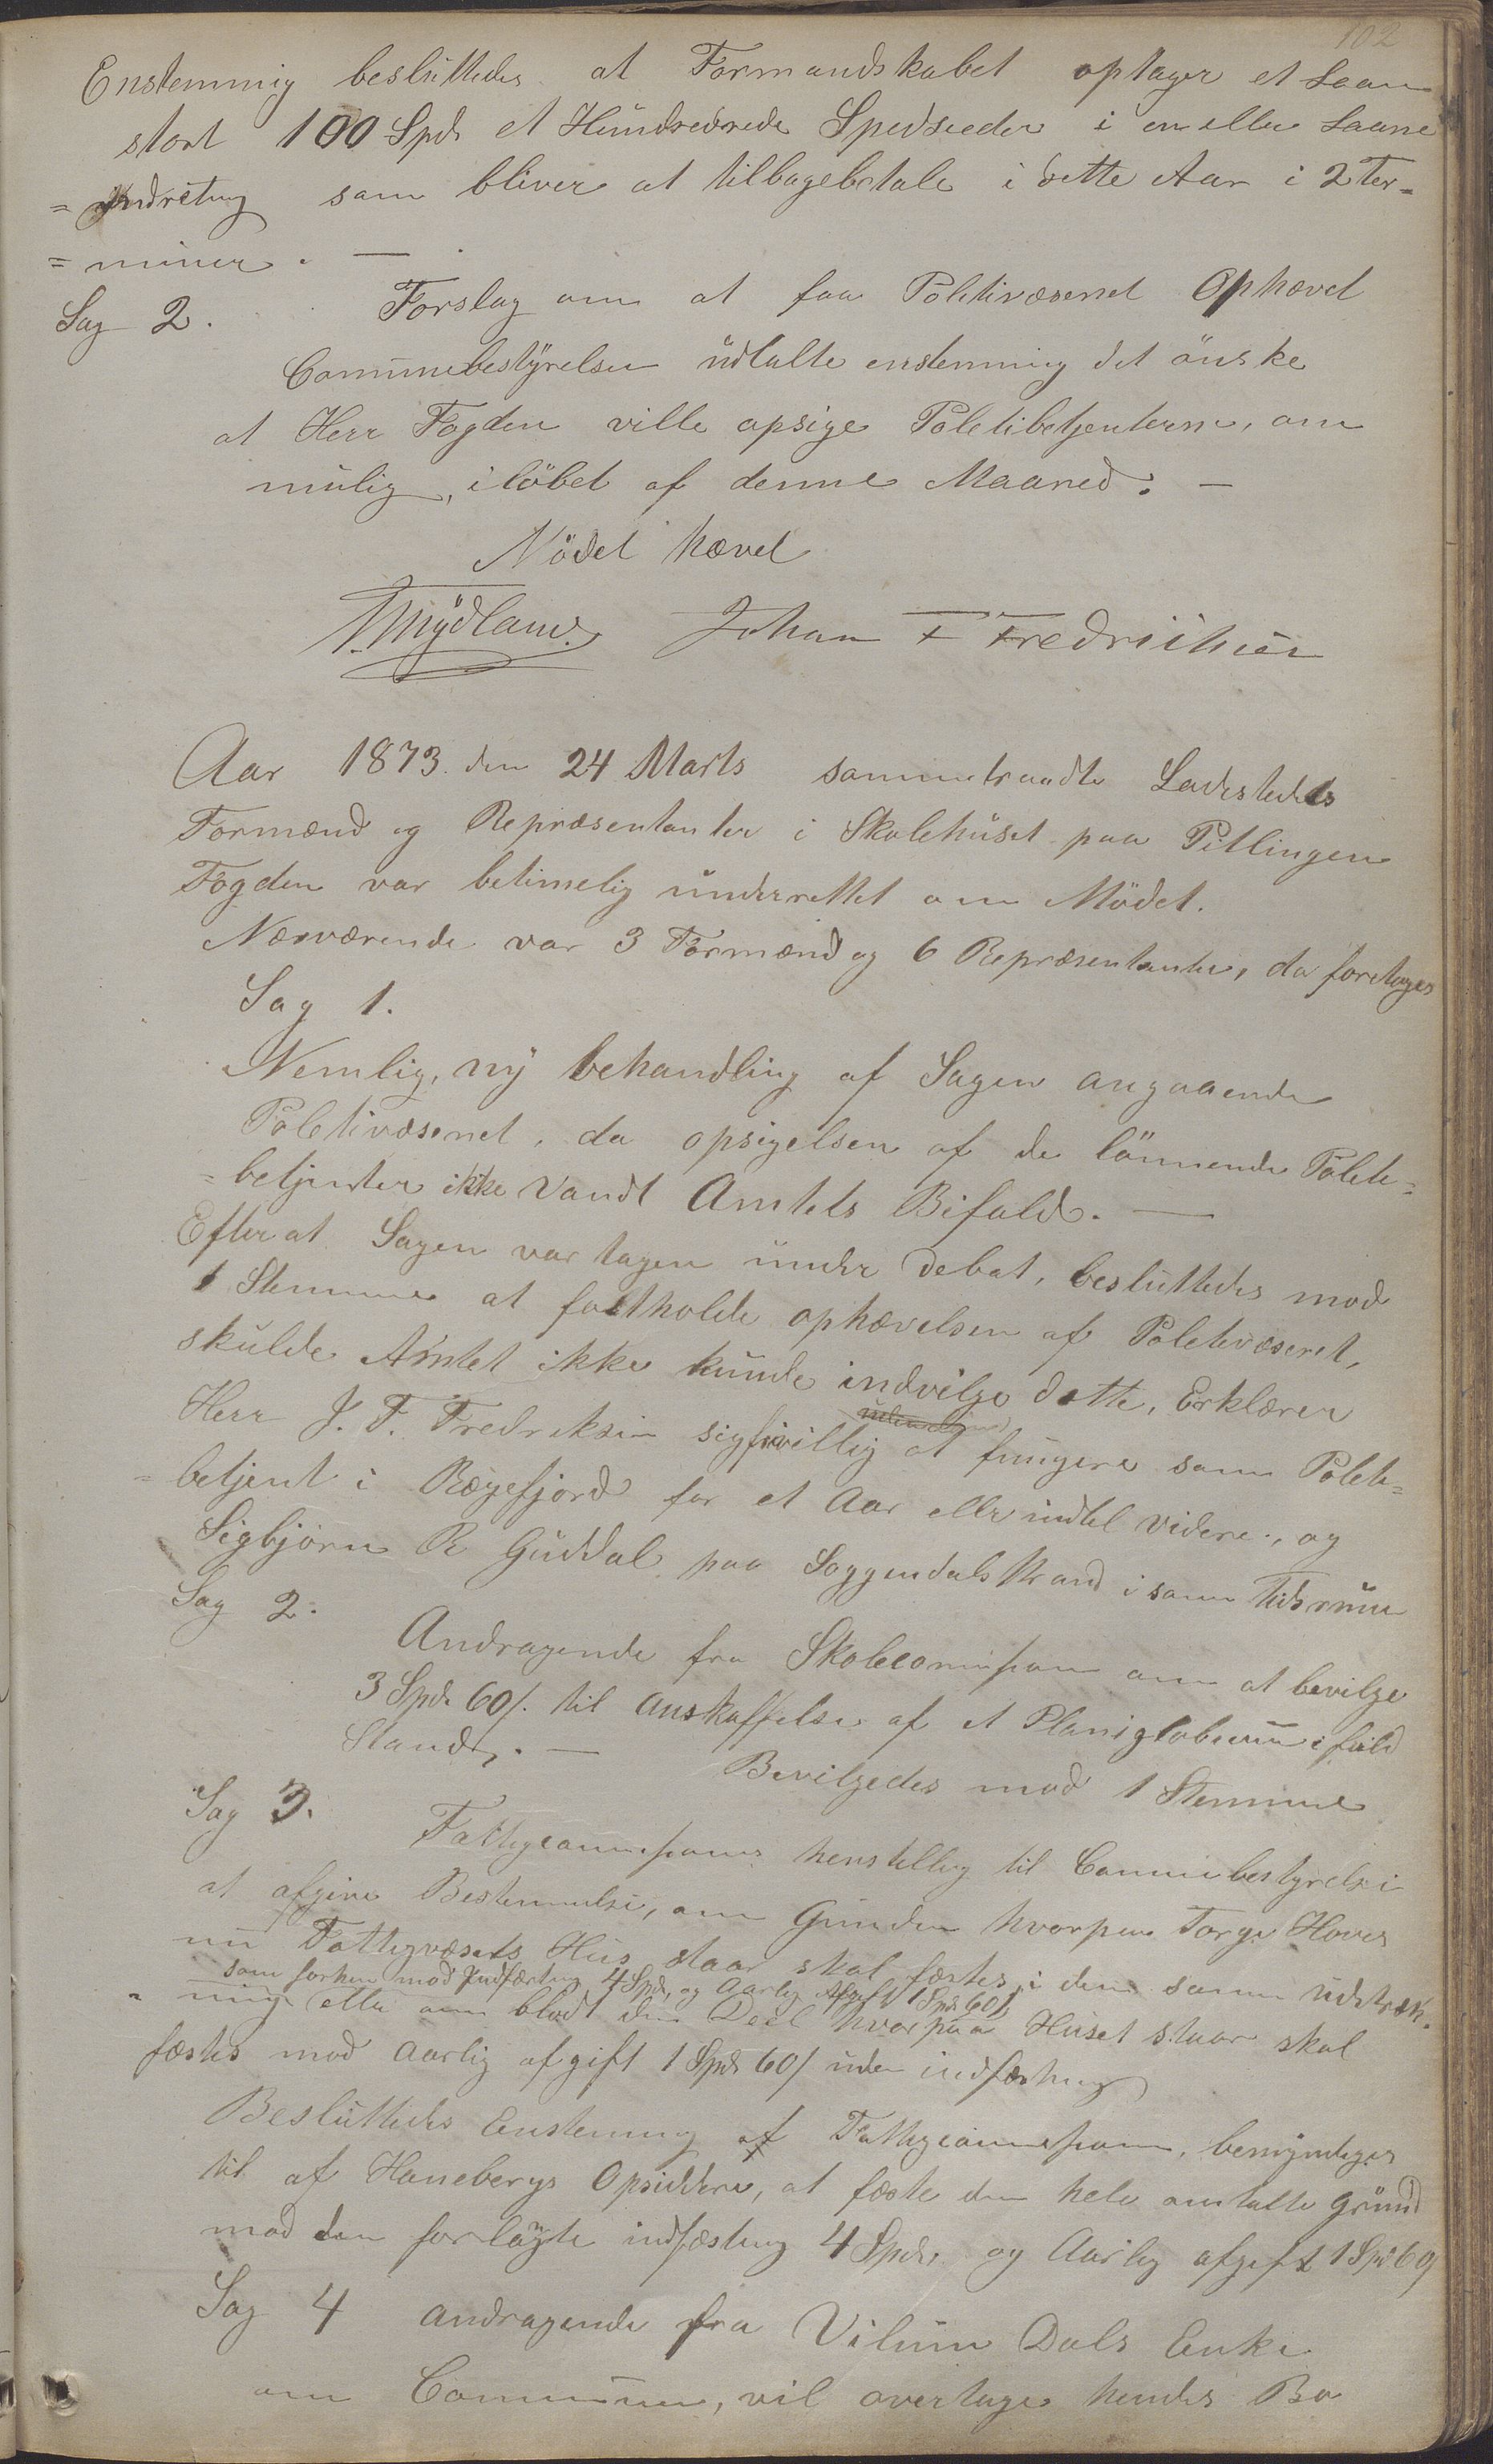 102
Enstemmig besluttedes at Formandskabet optager et Laan
stort 100 Spd et Hundredrede Spedseeder i en eller Laane
=indretng som bliver at tilbagebetale i dette Aar i 2 Ter=
=miner. —
Sag 2. Forslag om at faa Politivæsenet Ophævet
Communebestyrelsen udtalte enstemmig det önske
at Herr Fogden ville opsige Poletibetjenterne, om
mulig, i löbet af denne Maaned. —
Mödet hævet
Mydland. Johan F Fredriksen
Aar 1873 den 24 Marts sammentraadte Ladestedets
Formænd og Repræsentanter i Skolehuset paa Pitlingen
Fogden var betimelig underrettet om Mödet.
Nærværende var 3 Formænd og 6 Repræsentanter, da foretages
Sag 1.
Nemlig, ny behandling af Sagen angaaende
Poletivæsenet, da opsigelsen af de lönnende Poleti=
=betjenter ikke vandt Amtets Bifald. —
Efter at Sagen var tagen under Debat, besluttedes mod
1 Stemme at fastholde ophævelsen af Poletivæsenet,
skulde Amtet ikke kunde indvilge dette, Erklærer
Herr J. F. Fredriksen sig frivillig at fungere som Poleti=
=betjent i Rægefjord for et Aar eller indtil videre, og
Sigbjørn R Guddal paa Soggendalstrand i samme Tidsrum
Sag 2. Andragende fra Skolecomission om at bevilge
3 Spd. 60/. til anskaffelse af et Planiglobium i fuld
Stand,. — Bevilgedes mod 1 Stemme
Sag 3. Fattigcomissions henstilling til Communebestyrelse
at afgive Bestemmelse, om Grunden hvorpaa Torge Hoves
nu Fattigvæsets Hus staar skal fæstes i den samme udstræk.
som forhen mod Indfæstng 4 Spd. og Aarlig Afgift 1 Spd 60/
=ning eller om blodt den Deel hvorpaa Huset staar skal
fæstes mod aarlig afgift 1 Spd 60/ uden indfæstning
Besluttedes Enstemmig at Fattigcommission, bemyndiges
til af Hanebergs Opsiddere, at fæste den hele omtalte Grund
mod den forlangte indfæstng 4 Spd, og Aarlig afgift 1 Spd 60/
Sag 4 andragende fra Vilum Dals Enke
om Communen, vil overtage hendes Bo